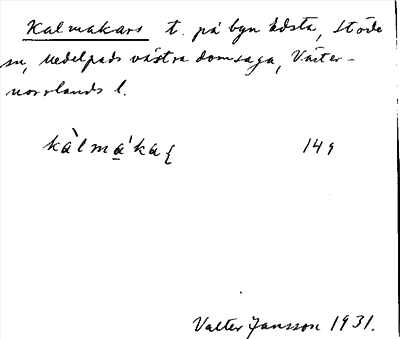 Kalmakars t. på byn Ädsta, Stöde
sn, Medelpads västra domsaga, Väster-
norrlands l.
kàlma'ka{ 149
Valter Jansson 1931.